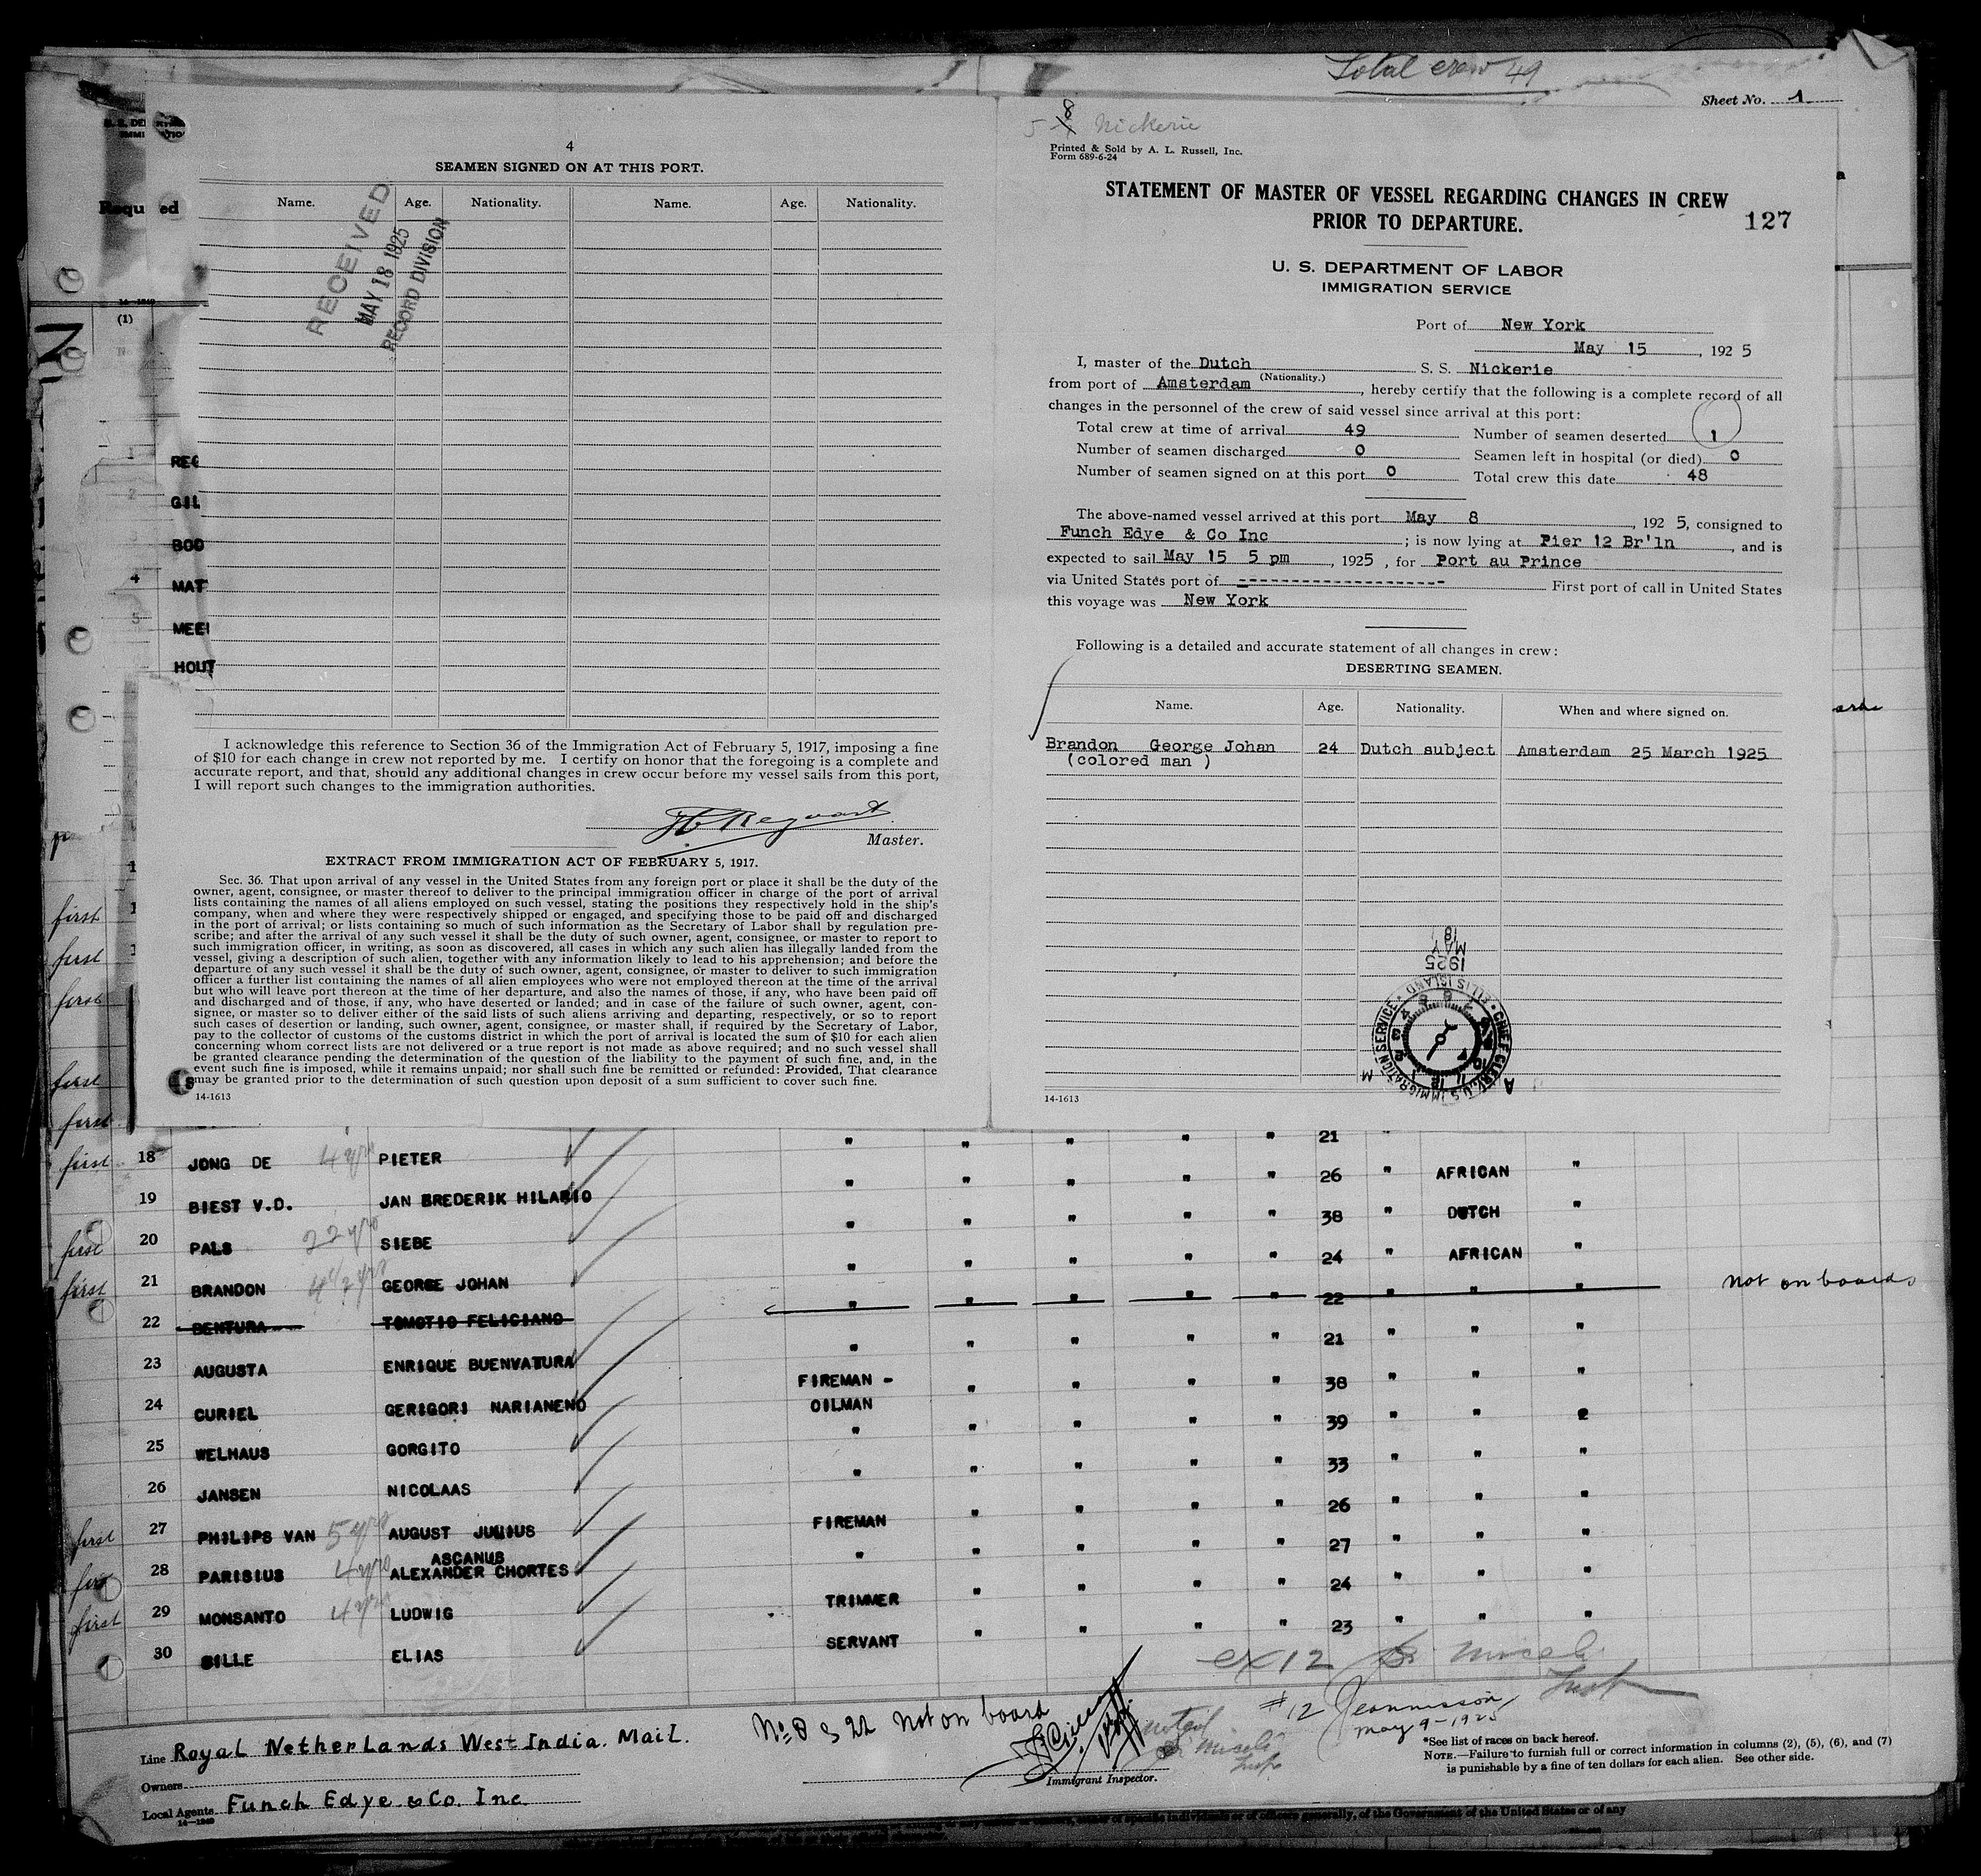 Total crew 49
Sheet No. 1
4
SEAMEN SIGNED ON AT THIS PORT.
Name. Age. Nationality. Name. Age. Nationality.
RECEIVED
MAY 18 1925
RECORD DIVISION
I acknowledge this reference to Section 36 of the Immigration Act of February 5, 1917, imposing a fine
of $10 for each change in crew not reported by me. I certify on honor that the foregoing is a complete and
accurate report, and that, should any additional changes in crew occur before my vessel sails from this port,
I will report such changes to the immigration authorities.
Master.
EXTRACT FROM IMMIGRATION ACT OF FEBRUARY 5, 1917.
Sec. 36. That upon arrival of any vessel in the United States from any foreign port or place it shall be the duty of the
owner, agent, consignee, or master thereof to deliver to the principal immigration officer in charge of the port of arrival
lists containing the names of all aliens employed on such vessel, stating the positions they respectively hold in the ship's
company, when and where they were respectively shipped or engaged, and specifying those to be paid off and discharged
in the port of arrival; or lists containing so much of such information as the Secretary of Labor shall by regulation pre-
scribe; and after the arrival of any such vessel it shall be the duty of such owner, agent, consignee, or master to report to
such immigration officer, in writing, as soon as discovered, all cases in which any such alien has illegally landed from the
vessel, giving a description of such alien, together with any information likely to lead to his apprehension; and before the
departure of any such vessel it shall be the duty of such owner, agent, consignee, or master to deliver to such immigration
officer a further list containing the names of all alien employees who were not employed thereon at the time of the arrival
but who will leave port thereon at the time of her departure, and also the names of those, if any, who have been paid off
and discharged and of those, if any, who have deserted or landed; and in case of the failure of such owner, agent, con-
signee, or master so to deliver either of the said lists of such aliens arriving and departing, respectively, or so to report
such cases of desertion or landing, such owner, agent, consignee, or master shall, if required by the Secretary of Labor,
pay to the collector of customs of the customs district in which the port of arrival is located the sum of $10 for each alien
concerning whom correct lists are not delivered or a true report is not made as above required; and no such vessel shall
be granted clearance pending the determination of the question of the liability to the payment of such fine, and, in the
event such fine is imposed, while it remains unpaid; nor shall such fine be remitted or refunded: Provided, That clearance
may be granted prior to the determination of such question upon deposit of a sum sufficient to cover such fine.
14-1613
5-8 Nickerie
Printed & Sold by A. L. Russell, Inc.
Form 689-6-24
STATEMENT OF MASTER OF VESSEL REGARDING CHANGES IN CREW
PRIOR TO DEPARTURE. 127
U. S. DEPARTMENT OF LABOR
IMMIGRATION SERVICE
Port of New York
May 15, 1925
I, master of the Dutch S. S. Nickerie
(Nationality.)
from port of Amsterdam, hereby certify that the following is a complete record of all
changes in the personnel of the crew of said vessel since arrival at this port:
Total crew at time of arrival 49 Number of seamen deserted 1
Number of seamen discharged 0 Seamen left in hospital (or died) 0
Number of seamen signed on at this port 0 Total crew this date 48
The above-named vessel arrived at this port May 8, 1925, consigned to
Funch Edye & Co Inc; is now lying at Pier 12 Br'ln, and is
expected to sail May 15 5 pm, 1925, for Port au Prince
via United States port of ------------------- First port of call in United States
this voyage was New York
Following is a detailed and accurate statement of all changes in crew:
DESERTING SEAMEN.
Name. Age. Nationality. When and where signed on.
Brandon George Johan 24 Dutch subject Amsterdam 25 March 1925
(colored man )
MAY 18 1925
CHIEF CLERK, U.S. IMMIGRATION SERVICE ELLIS ISLAND
14-1613
Requ ed
(1)
REG
GIL
BOO
4 MAT
5 MEE
HOUT
first
first
first
first
first
" " " " " 21 "
first 18 JONG DE 4 yrs PIETER " " " " " 26 " AFRICAN "
19 BIEST V.D. JAN BREDERIK HILARIO " " " " " 38 " DUTCH "
first 20 PALS 22 yrs SIEBE " " " " " 24 " AFRICAN "
first 21 BRANDON 4 1/2 yrs GEORGE JOHAN " " " " " 22 " " " Not on board
22 BENTURA TOMOTIO FELICIANO " " " " " 21 " " "
23 AUGUSTA ENRIQUE BUENVATURA FIREMAN - " " " " 38 " " "
24 CURIEL GERIGORI NARIANENO OILMAN " " " " 39 " " "
25 WELHAUS GORGITO " " " " " 33 " " "
26 JANSEN NICOLAAS " " " " 26 " " "
first 27 PHILIPS VAN 5 yrs AUGUST JULIUS FIREMAN " " " " 27 " " "
28 PARISIUS 4 yrs ASCANUS
ALEXANDER CHORTES " " " " 24 " " "
first 29 MONSANTO 4 yrs LUDWIG TRIMMER " " " " 23 " " "
30 BILLE ELIAS SERVANT
ex 12
No. 8 & 22 Not on board
#12 Jeannisson
May 9-1925
Line Royal Netherlands West India. Mail.
Owners
Local Agents Funch Edye & Co. Inc.
14-1240
Immigrant Inspector.
*See list of races on back hereof.
NOTE.—Failure to furnish full or correct information in columns (2), (5), (6), and (7)
is punishable by a fine of ten dollars for each alien. See other side.